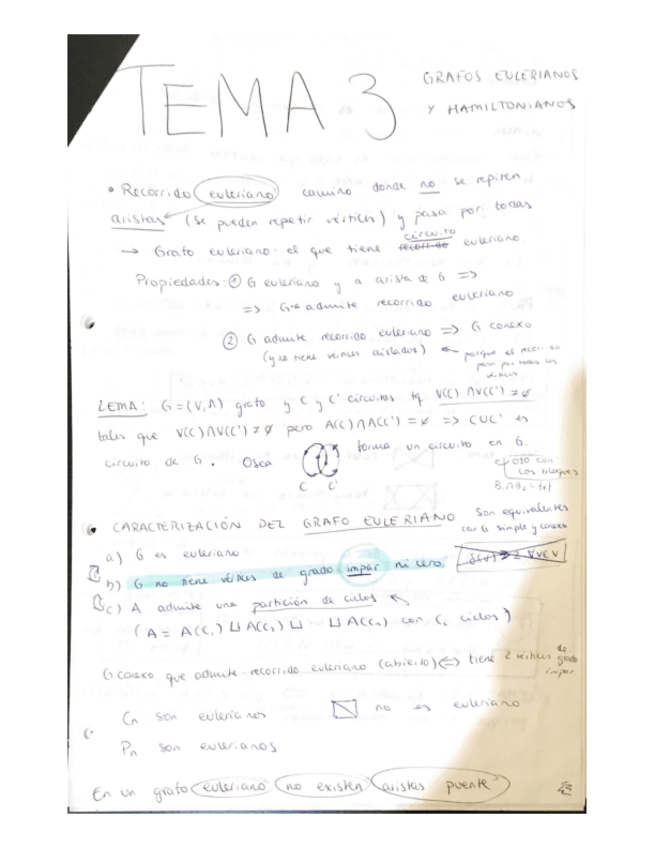 TEMA 3 GRAFOS EULERIANOS
Y HAMILTONIANOS
• Recorrido euleriano camino donde no se repiten
aristas (se pueden repetir vértices) y pasa por todas
circuito
→ Grafo euleriano: el que tiene euleriano.
Propiedades: ① G euleriano y a arista de G =>
=> G-a admite recorrido euleriano
② G admite recorrido euleriano => G conexo
(y no tiene vértices aislados) ← porque el recorrido
pasa por todos los
vértices
LEMA: G=(V,A) grafo y C y C' circuitos tq V(C) ∩ V(C') ≠ ∅
tales que V(C)∩V(C') ≠ ∅ pero A(C)∩A(C') = ∅ => C∪C' es
circuito de G. Osea forma un circuito en G.
C C'
OJO con
los bloques
• CARACTERIZACIÓN DEL GRAFO EULERIANO son equivalentes
con G simple y conexo
a) G es euleriano
b) G no tiene vértices de grado impar ni cero.
c) A admite una partición de ciclos
(A = A(C₁) ⊔ A(C₂) ⊔ ⊔ A(Cₙ) con Cᵢ ciclos)
G conexo que admite recorrido euleriano (abierto) <=> tiene 2 vértices de grado
impar.
Cn son eulerianos no es euleriano
Pn son eulerianos
En un grafo euleriano no existen aristas puente